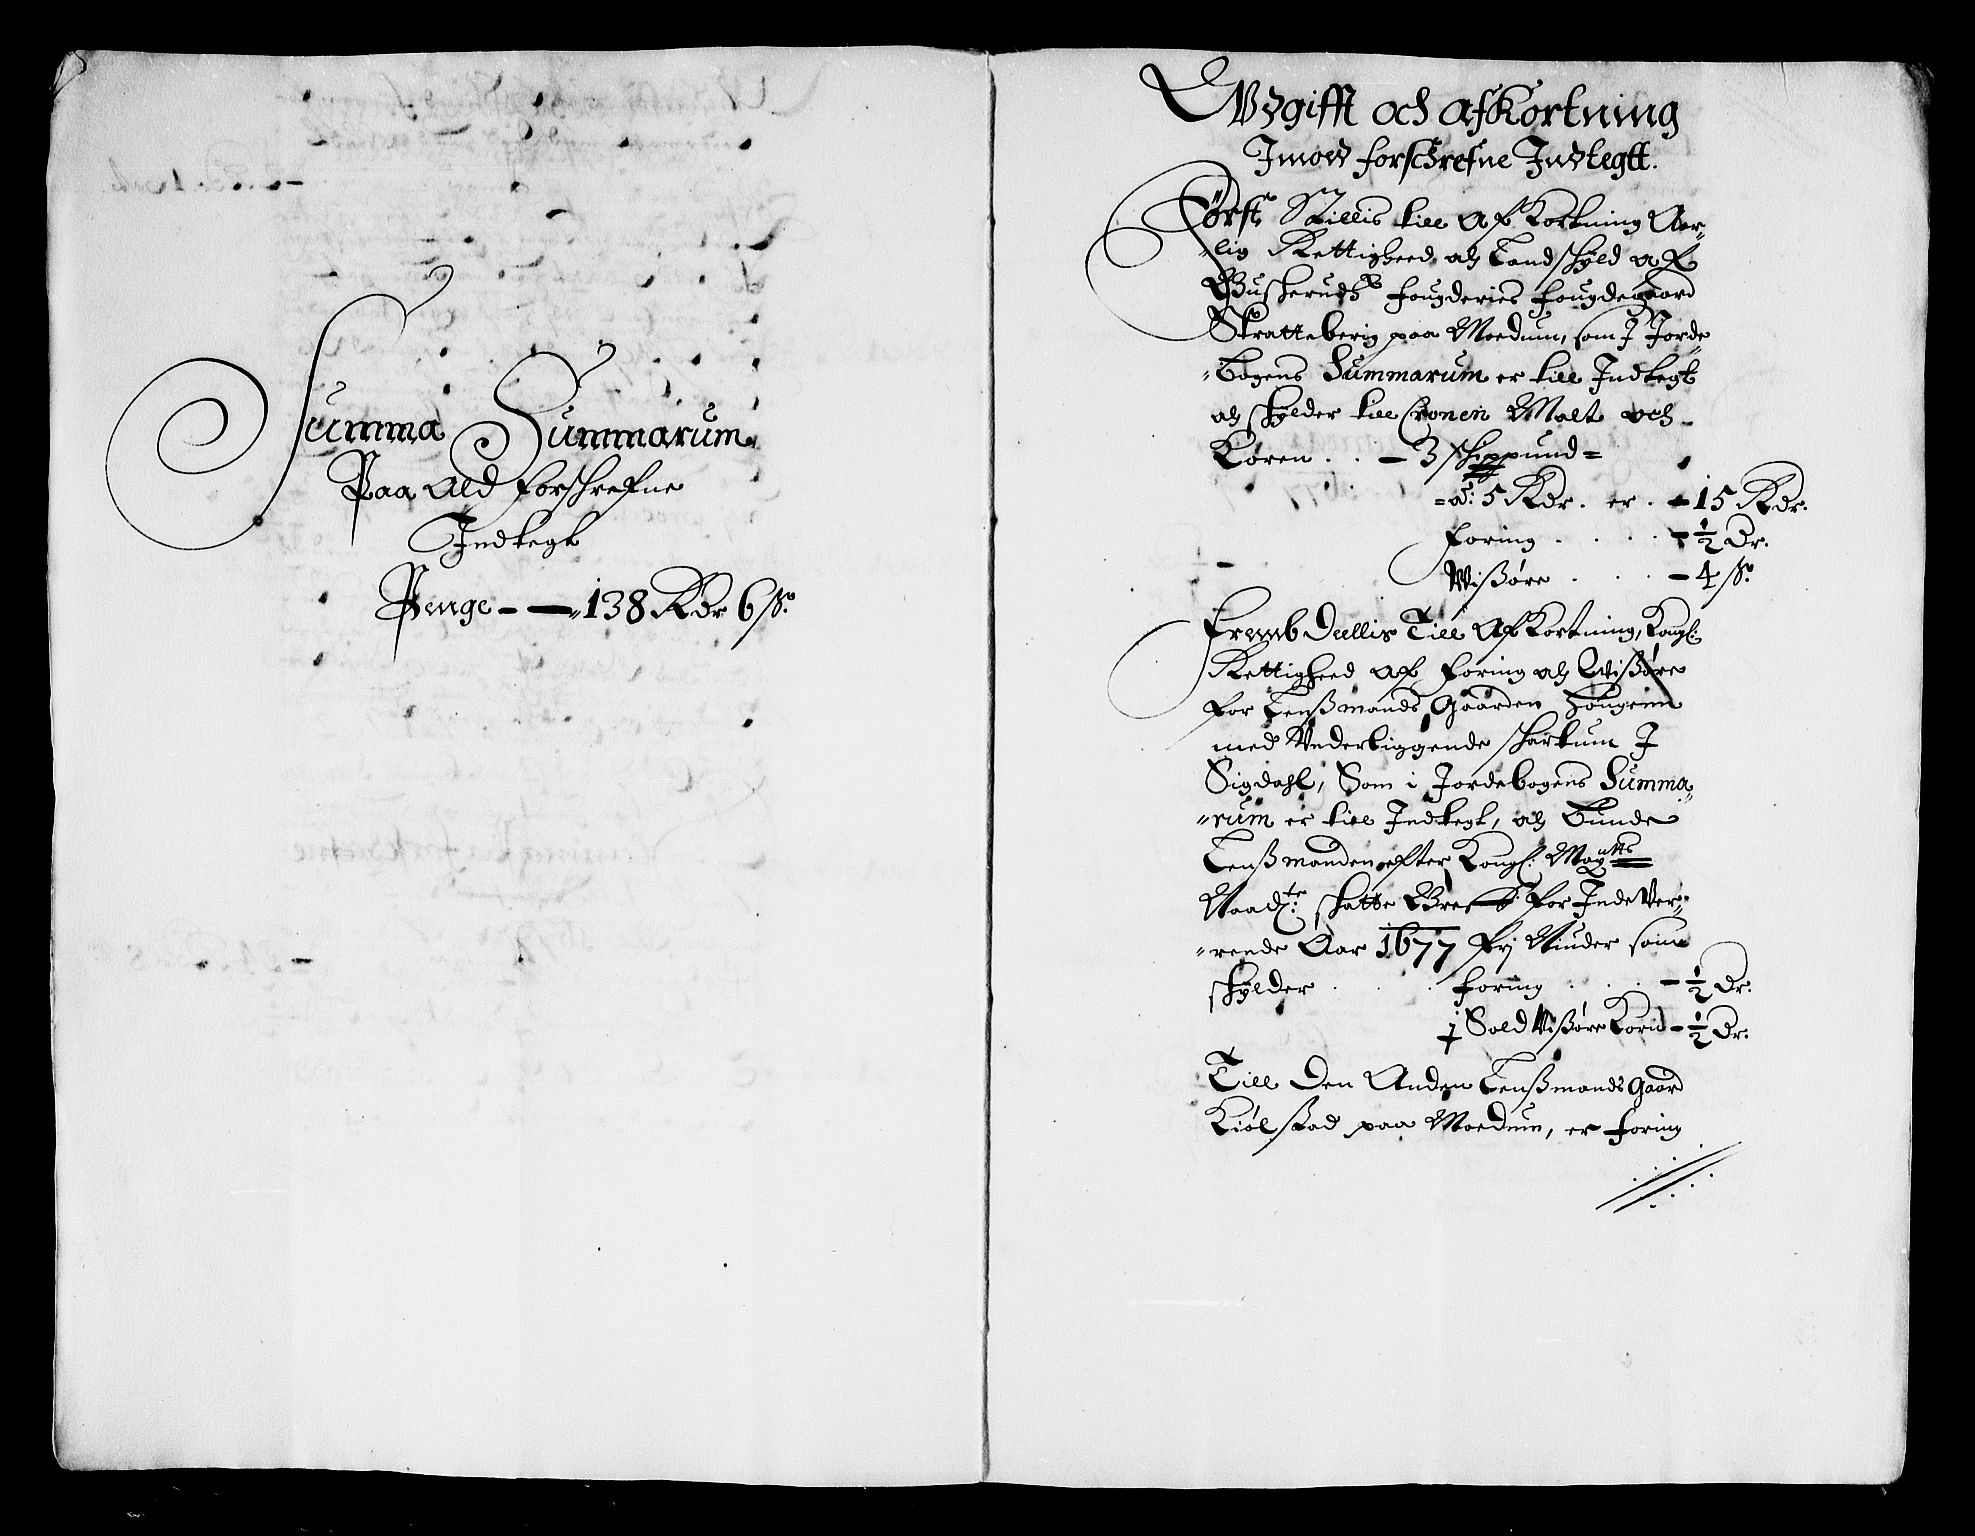 Summa Summarum
Paa Ald forschrefne
Indtegt
Penge - - 138 Rdr 6 s.
Vdgifft och afKortning
Imod forschrefne Indtegtt.
Først Stillis till AfKortning Aar-
lig Rettigheed, och Landschyld af
Buscheruds fougderies fougdegaard
Skratteberig paa Moedum, som J Jorde
-bogens Summarum er till Indtegt
och schylder till Cronen Malt och
Koren . . - 3 schippund =
= a: 5 Rdr. er . - 15 Rdr.
foring . . . . - ½ Dr.
Wißøre . . . - 4 s.
fremb Dellis Till AfKortning, Kongl:
Rettigheed af foring och Wißøre
for Lenßmands Gaarden Hougenn
med Vnderliggende parter J
Sigdahl, Som i Jordebogens Summa-
-rum er till Indtegt, och Bunde
Lenßmanden efter Kongl: May:tts
Naad:te schatte Breff for Inde Ver-
-rende Aar 1677 frj Niuder som
schylder . . . foring . . . - ½ Dr.
j Sold Wißøre Korn - ½ Dr.
Till Den Anden Lenßmands Gaard
Kiølstad paa Moedum, er foring